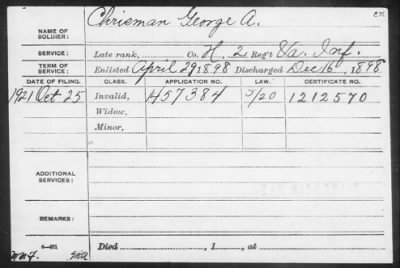 Chrisman George A. CK
NAME OF SOLDIER:
SERVICE: Late rank, Co. H, 2 Reg't Va. Inf.
TERM OF SERVICE: Enlisted April 29 1898 Discharged Dec 16, 1898
DATE OF FILING. CLASS. APPLICATION NO. LAW. CERTIFICATE NO.
1921 Oct 25 Invalid, 457384 5/20 1212570
Widow,
Minor,
ADDITIONAL SERVICES:
REMARKS:
Died , 1 , at